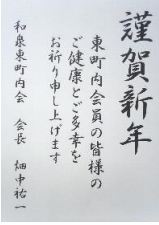 謹賀新年
東町内会員の皆様の
ご健康とご多幸を
お祈り申し上げます
和泉東町内会 会長 畑中祐一